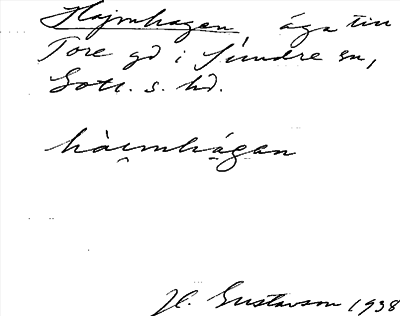 Hajmhagen, äga till
Tore gd i Sundre sn,
Gotl. s. hd.
hàimhágan
H. Gustavson 1938